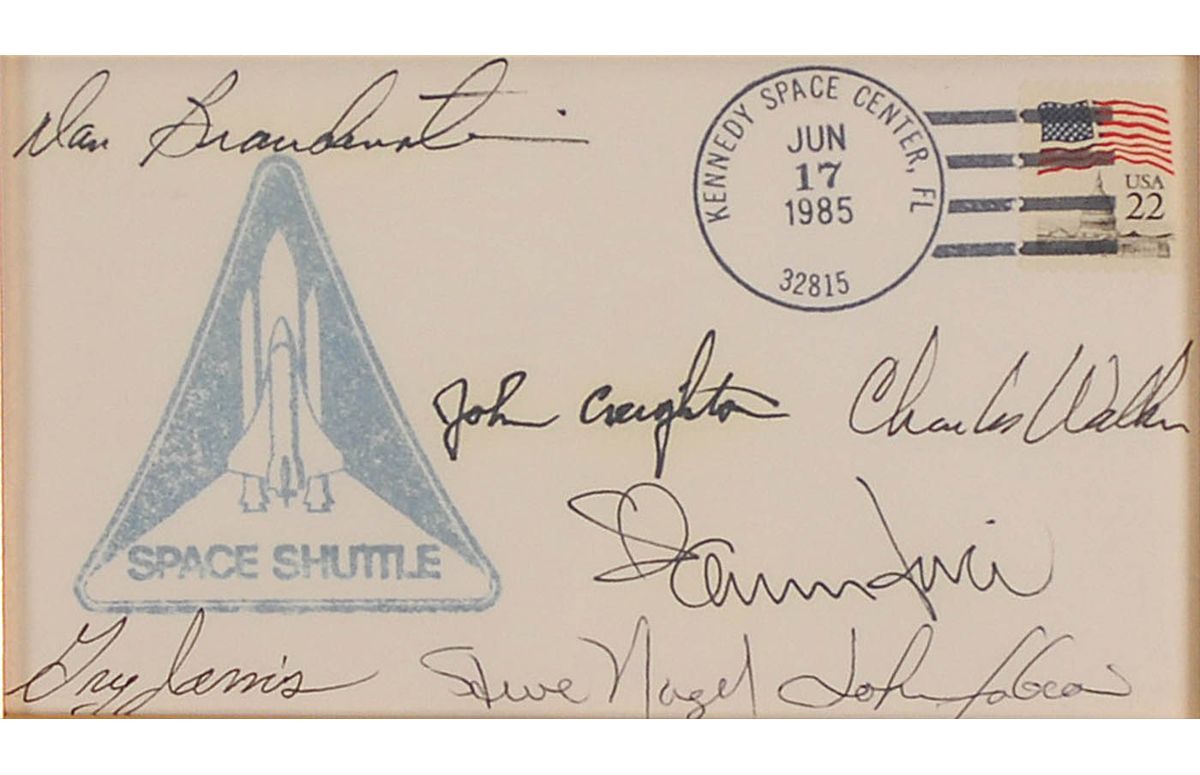 Dan Brandenstein
KENNEDY SPACE CENTER, FL
JUN
17
1985
32815
USA
22
John Creighton
Charles Walker
Shannon Lucid
SPACE SHUTTLE
Greg Jarvis
Steve Nagel
John Fabian